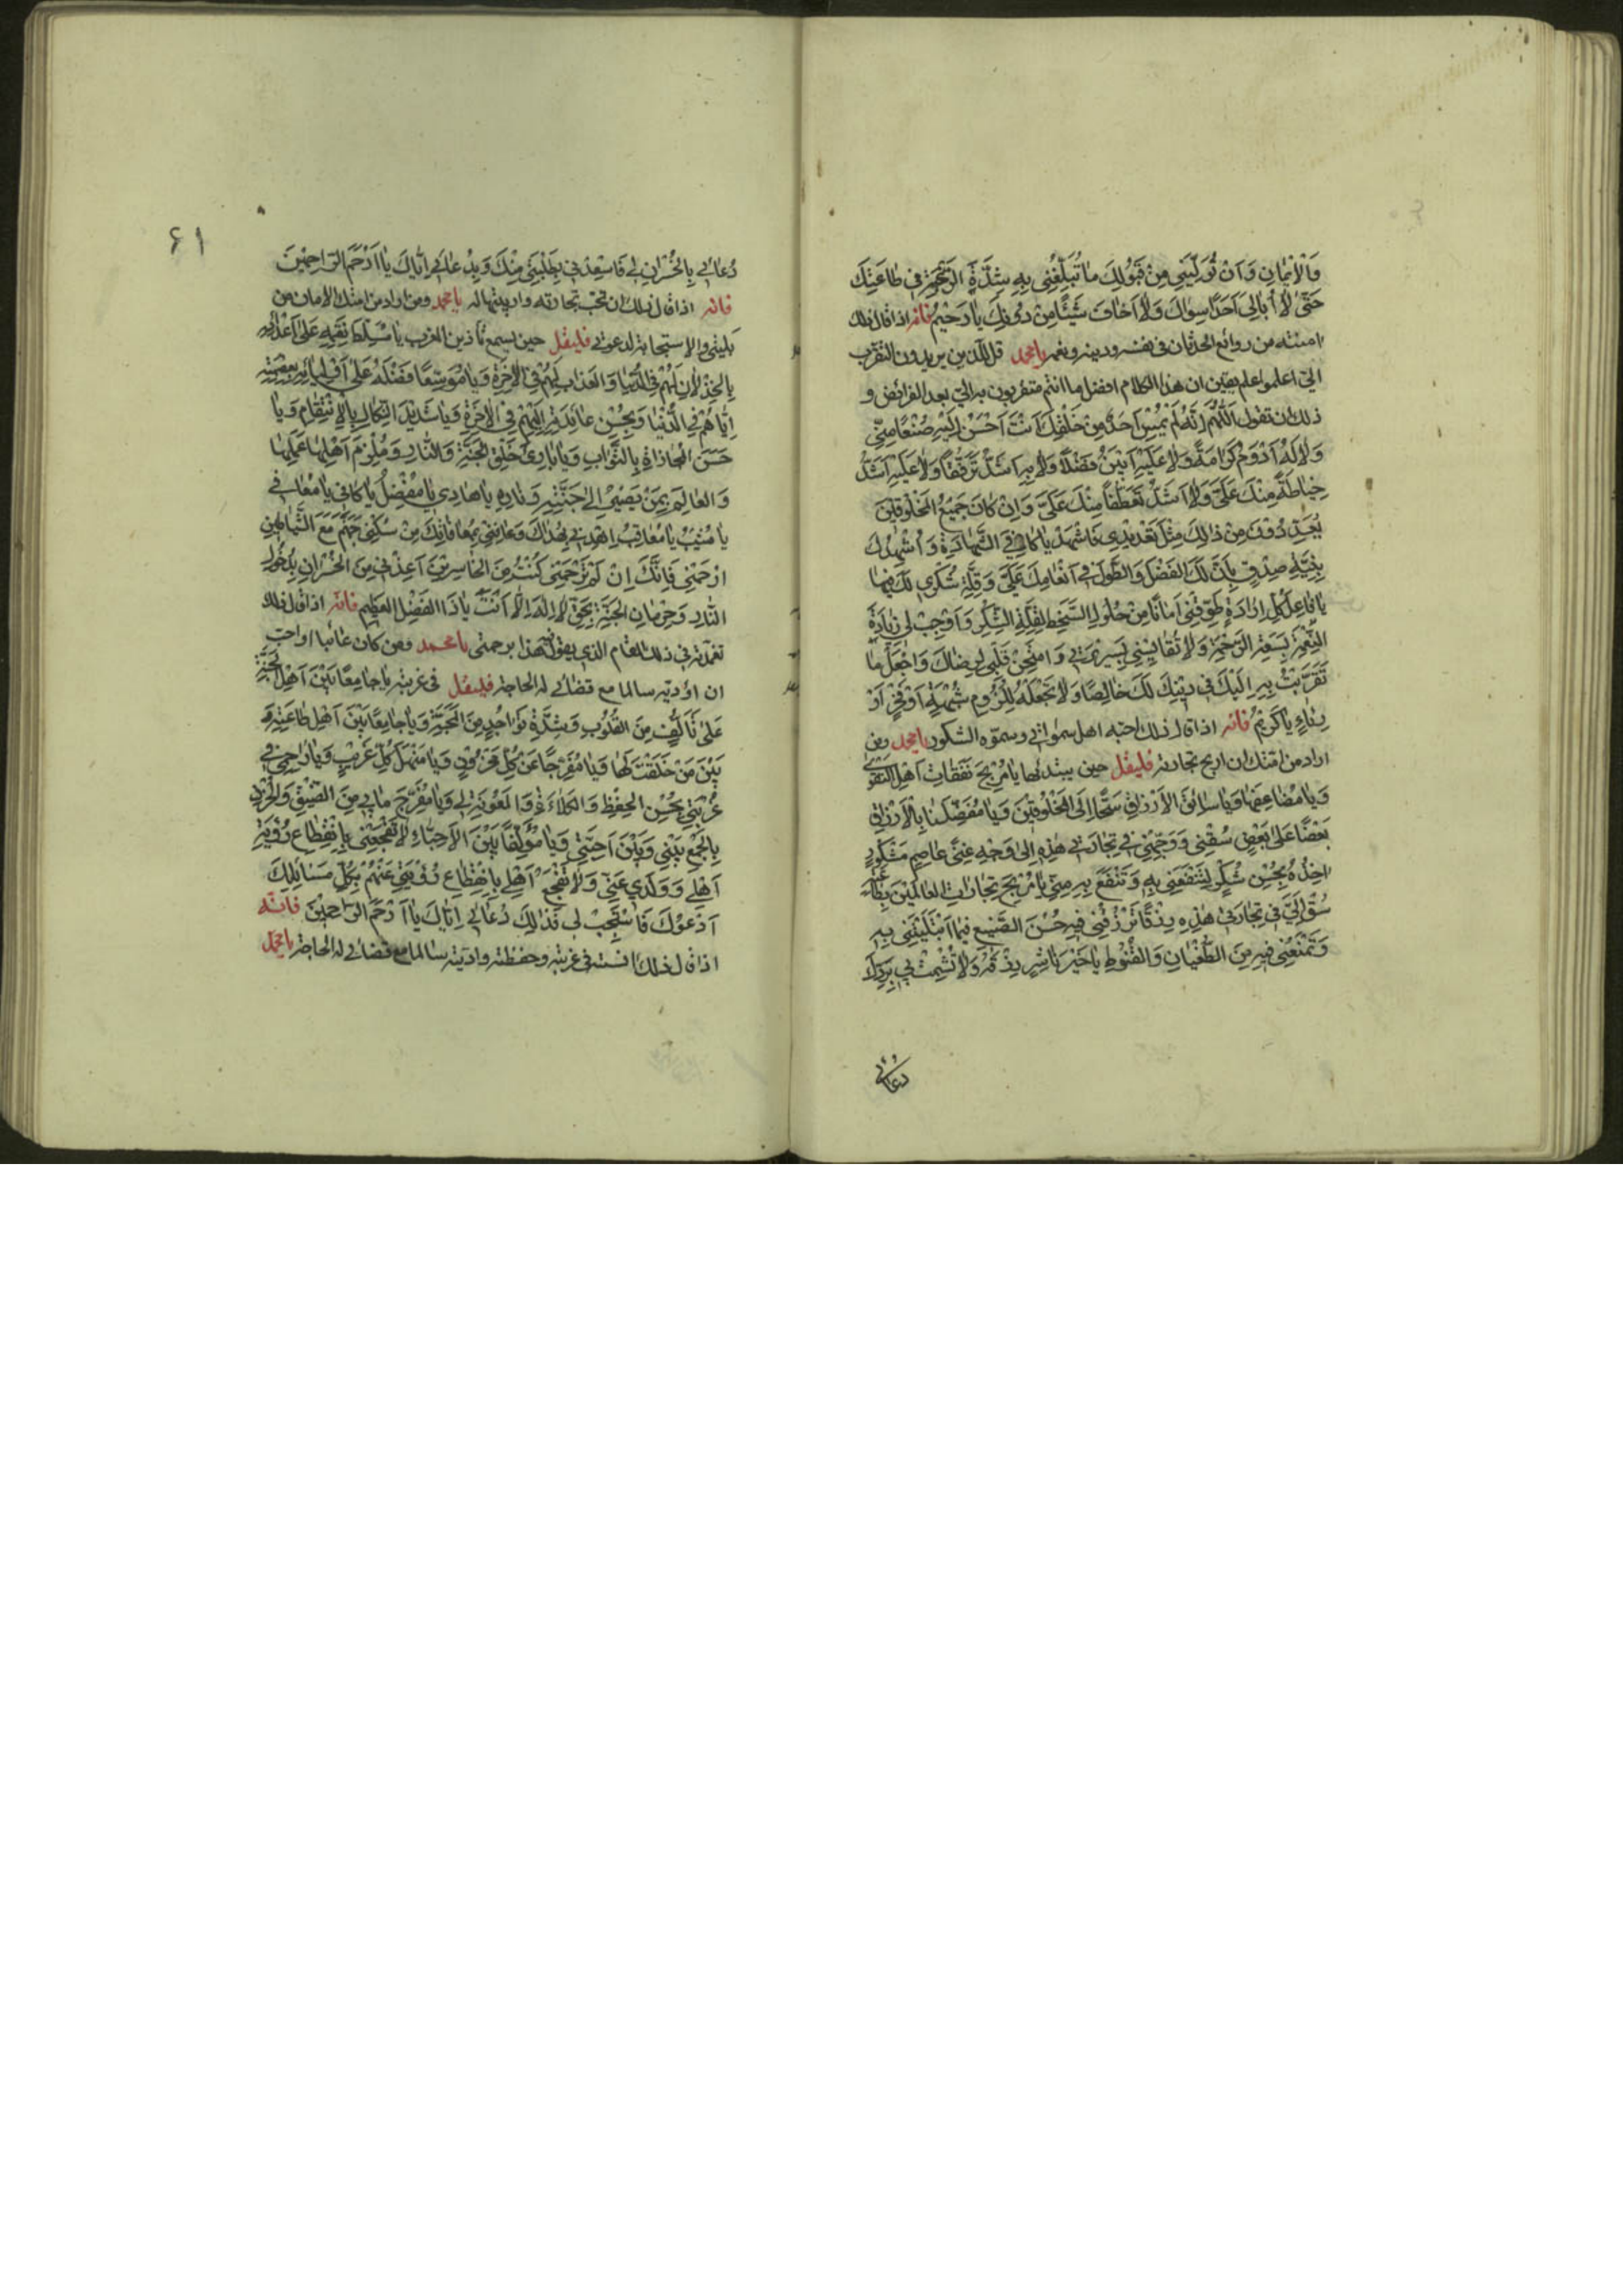 وَالْاِیْمَانِ وَاَنْ تُوَلِّیَنِی مِنْ قَبُولِكَ مَا تُبَلِّغُنِی بِهِ شِدَّةَ الرَّغْبَةِ فِی طَاعَتِكَ
حَتَّى لَا اُبَالِیَ اَحَدًا سِوَاكَ وَلَا اَخَافَ شَیْئًا مِنْ دُونِكَ یَا رَحِیْمُ فانه اذا قال ذلك
امنته من روائع الحدثان فی نفسه ودینه ونعمه یا محمد قل للذین یریدون التقرب
الیّ اعلموا علم یقین ان هذا الكلام افضل ما انتم متقربون به الیّ بعد الفرائض و
ذلك ان تقول اَللّٰهُمَّ اِنَّهُ لَمْ یُمْسِ اَحَدٌ مِنْ خَلْقِكَ اَنْتَ اَحْسَنُ اِلَیْهِ صُنْعًا مِنِّی
وَلَا لَهُ اَدْوَمُ كَرَامَةً وَلَا عَلَیْهِ اَبْیَنُ فَضْلًا وَلَا بِهِ اَشَدُّ تَرَفُّقًا وَلَا عَلَیْهِ اَشَدُّ
حِیَاطَةً مِنْكَ عَلَیَّ وَلَا اَشَدُّ تَعَطُّفًا مِنْكَ عَلَیَّ وَاِنْ كَانَ جَمِیْعُ الْمَخْلُوقِیْنَ
یُعَدِّدُونَ مِنْ ذَالِكَ مِثْلَ تَعْدِیْدِی فَاشْهَدْ یَا كَافِیَ الشَّهَادَةِ وَاُشْهِدُكَ
بِنِیَّةِ صِدْقٍ بِاَنَّ لَكَ الْفَضْلَ وَالطَّوْلَ فِی اِنْعَامِكَ عَلَیَّ وَقِلَّةِ شُكْرِی لَكَ فِیْهَا
یَا فَاعِلَ كُلِّ اِرَادَةٍ طَوِّقْنِی اَمَانًا مِنْ حُلُولِ السَّخَطِ لِقِلَّةِ الشُّكْرِ وَاَوْجِبْ لِی زِیَادَةَ
النِّعْمَةِ بِسَعَةِ الرَّحْمَةِ وَلَا تُقَایِسْنِی بِسَرِیْرَتِی وَامْتَحِنْ قَلْبِی لِرِضَاكَ وَاجْعَلْ مَا
تَقَرَّبْتُ بِهِ اِلَیْكَ فِی دِیْنِكَ لَكَ خَالِصًا وَلَا تَجْعَلْهُ لِلُزُومِ شُبْهَةٍ اَوْ فَخْرٍ اَوْ
رِیَاءٍ یَا كَرِیْمُ فانه اذا قال ذلك احبه اهل سمواتی وسموه الشكور یا محمد ومن
اراد من امتك ان اربح تجارته فلیقل حین یبتدئها یَا مُرْبِحَ نَفَقَاتِ اَهْلِ التَّقْوَى
وَیَا مُضَاعِفَهَا وَیَا سَائِقَ الْاَرْزَاقِ سَحًّا اِلَى الْمَخْلُوقِیْنَ وَیَا مُفَضِّلَنَا بِالْاَرْزَاقِ
بَعْضًا عَلَى بَعْضٍ سُقْنِی وَوَجِّهْنِی فِی تِجَارَتِی هٰذِهِ اِلَى وَجْهِ غِنًى عَاصِمٍ مَشْكُورٍ
اٰخُذُهُ بِحُسْنِ شُكْرٍ لِتَنْفَعَنِی بِهِ وَتَنْفَعَ بِهِ مِنِّی یَا مُرْبِحَ تِجَارَاتِ الْعَالَمِیْنَ بِطَاعَتِهِ
سُقْ اِلَیَّ فِی تِجَارَتِی هٰذِهِ رِزْقًا تَرْزُقُنِی فِیهِ حُسْنَ الصَّنِیعِ فِیمَا ابْتَلَیْتَنِی بِهِ
وَتَمْنَعُنِی فِیهِ مِنَ الطُّغْیَانِ وَالْقُنُوطِ یَا خَیْرَ نَاشِرٍ رِزْقَهُ وَلَا تُشْمِتْ بِی بِرَدِّكَ
دعائی
٦١
دُعَائِی بِالْخُسْرَانِ لِی فَاَسْعِدْنِی بِطَلِبَتِی مِنْكَ وَبِدُعَائِی اِیَّاكَ یَا اَرْحَمَ الرَّاحِمِیْنَ
فانه اذا قال ذلك اربحت تجارته واربیتها له یا محمد ومن اراد من امتك الامان من
بلیتی والاستجابة لدعوتی فلیقل حین یسمع تاذین المغرب یَا مُسَلِّطَ نِقَمِهِ عَلَى اَعْدَائِهِ
بِالْخِذْلَانِ لَهُمْ فِی الدُّنْیَا وَالْعَذَابِ لَهُمْ فِی الْاٰخِرَةِ وَیَا مُوَسِّعًا فَضْلَهُ عَلَى اَوْلِیَائِهِ بِعِصْمَتِهِ
اِیَّاهُمْ فِی الدُّنْیَا وَبِحُسْنِ عَائِدَتِهِ اِلَیْهِمْ فِی الْاٰخِرَةِ وَیَا شَدِیْدَ النَّكَالِ بِالْاِنْتِقَامِ وَیَا
حَسَنَ الْمُجَازَاةِ بِالثَّوَابِ وَیَا بَارِئَ خَلْقِ الْجَنَّةِ وَالنَّارِ وَمُلْزِمَ اَهْلِهِمَا عَمَلَهُمَا
وَالْعَالِمَ بِمَنْ یَصِیْرُ اِلَى جَنَّتِهِ وَنَارِهِ یَا هَادِی یَا مُفْضِلُ یَا كَافِی یَا مُعَافِی
یَا مُثِیْبُ یَا مُعَاقِبُ اِهْدِنِی بِهُدَاكَ وَعَافِنِی بِمُعَافَاتِكَ مِنْ سُكْنَى جَهَنَّمَ مَعَ الشَّیَاطِیْنِ
ارْحَمْنِی فَاِنَّكَ اِنْ لَمْ تَرْحَمْنِی كُنْتُ مِنَ الْخَاسِرِیْنَ اَعِذْنِی مِنَ الْخُسْرَانِ بِدُخُولِ
النَّارِ وَحِرْمَانِ الْجَنَّةِ بِحَقِّ لَا اِلٰهَ اِلَّا اَنْتَ یَا ذَا الْفَضْلِ الْعَظِیْمِ فانه اذا قال ذلك
تغمدته فی ذلك المقام الذی یقول فیه هذا برحمتی یا محمد ومن كان غائبا او احب
ان اؤدیه سالما مع قضائی له الحاجة فلیقل فی غربته یَا جَامِعًا بَیْنَ اَهْلِ الْجَنَّةِ
عَلَى تَاَلُّفٍ مِنَ الْقُلُوبِ وَشِدَّةِ تَوَاجُدٍ مِنَ الْمَحَبَّةِ وَیَا جَامِعًا بَیْنَ اَهْلِ طَاعَتِهِ وَ
بَیْنَ مَنْ خَلَقْتَ لَهَا وَیَا مُفَرِّجًا عَنْ كُلِّ مَحْزُونٍ وَیَا مَنْهَلَ كُلِّ غَرِیْبٍ وَیَا رَاحِمِی فِی
غُرْبَتِی بِحُسْنِ الْحِفْظِ وَالْكَلَاءَةِ وَالْمَعُونَةِ لِی وَیَا مُفَرِّجَ مَا بِی مِنَ الضِّیْقِ وَالْحُزْنِ
بِالْجَمْعِ بَیْنِی وَبَیْنَ اَحِبَّتِی وَیَا مُؤَلِّفًا بَیْنَ الْاَحِبَّاءِ لَا تَفْجَعْنِی بِانْقِطَاعِ رُؤْیَةِ
اَهْلِی وَوَلَدِی عَنِّی وَلَا تَفْجَعْ اَهْلِی بِانْقِطَاعِ رُؤْیَتِی عَنْهُمْ بِكُلِّ مَسَائِلِكَ
اَدْعُوكَ فَاسْتَجِبْ لِی فَذٰلِكَ دُعَائِی اِیَّاكَ یَا اَرْحَمَ الرَّاحِمِیْنَ فانه
اذا قال ذلك انسته فی غربته وحفظته وادیته سالما مع قضائی له الحاجة یا محمد